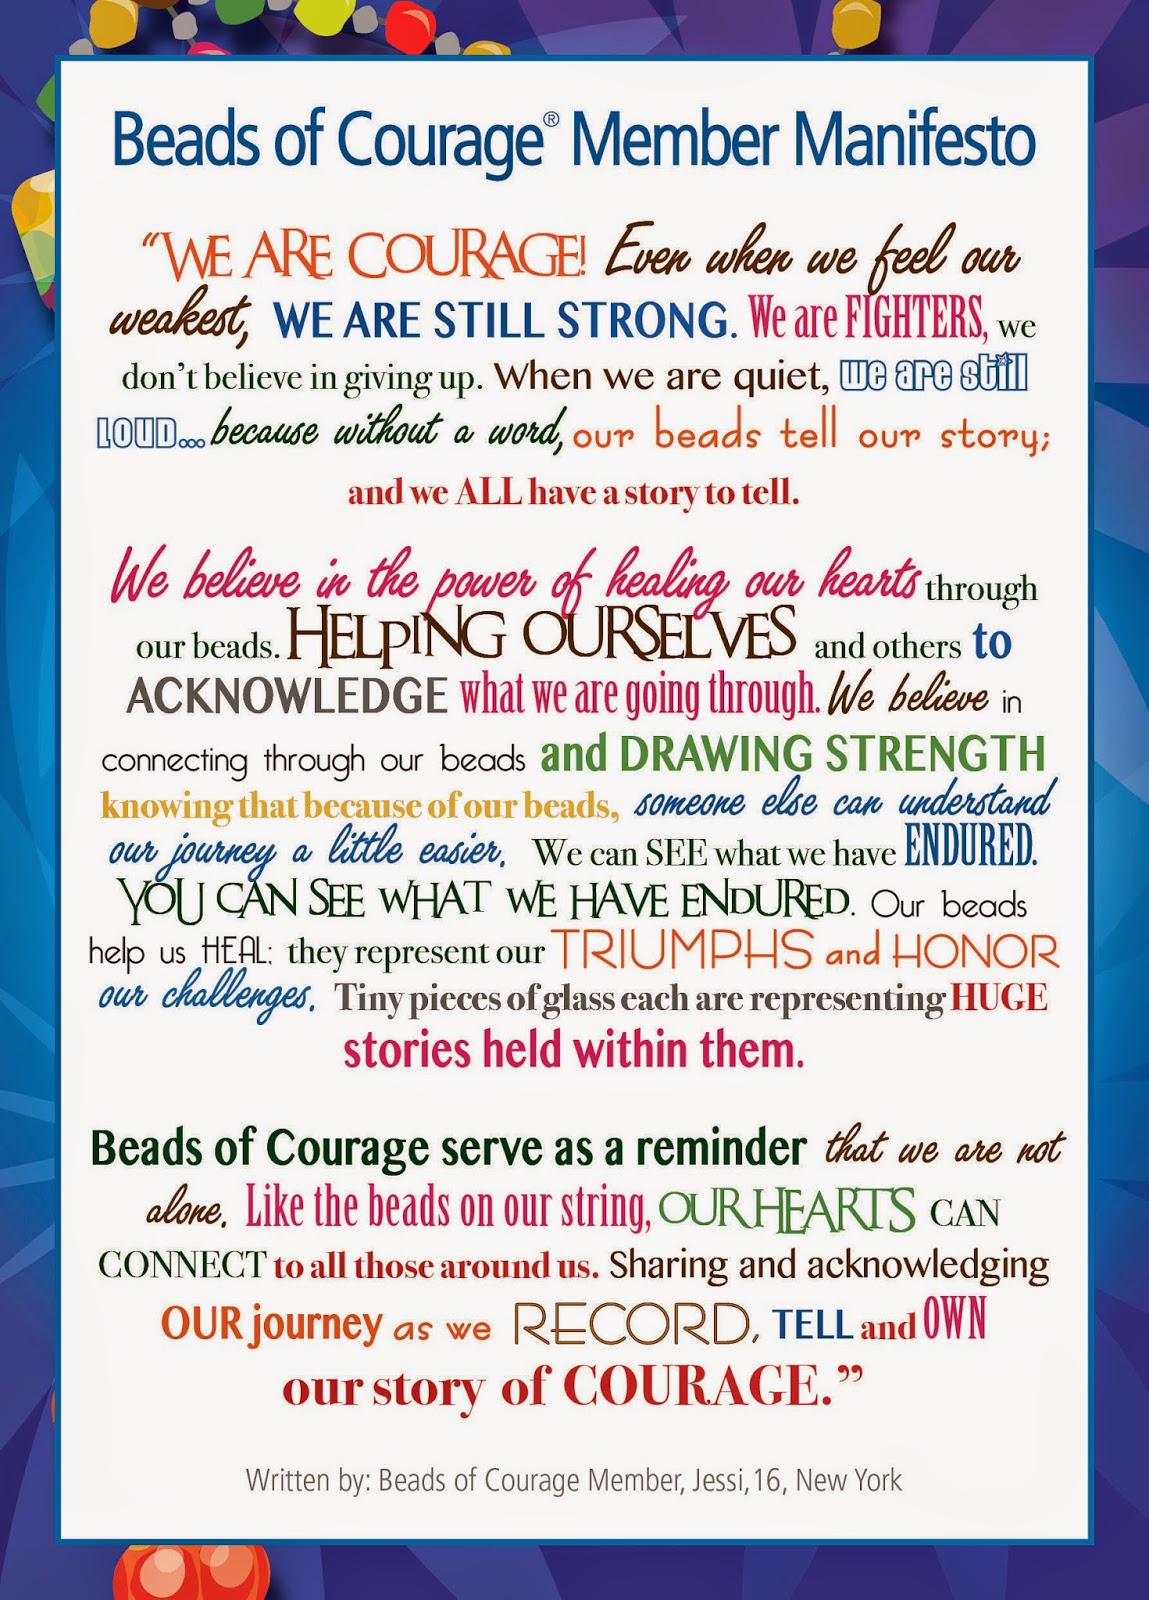 Beads of Courage® Member Manifesto
“WE ARE COURAGE! Even when we feel our
weakest, WE ARE STILL STRONG. We are FIGHTERS, we
don’t believe in giving up. When we are quiet, we are still
LOUD... because without a word, our beads tell our story;
and we ALL have a story to tell.
We believe in the power of healing our hearts through
our beads. HELPING OURSELVES and others to
ACKNOWLEDGE what we are going through. We believe in
connecting through our beads and DRAWING STRENGTH
knowing that because of our beads, someone else can understand
our journey a little easier. We can SEE what we have ENDURED.
YOU CAN SEE WHAT WE HAVE ENDURED. Our beads
help us HEAL; they represent our TRIUMPHS and HONOR
our challenges. Tiny pieces of glass each are representing HUGE
stories held within them.
Beads of Courage serve as a reminder that we are not
alone. Like the beads on our string, OUR HEARTS CAN
CONNECT to all those around us. Sharing and acknowledging
OUR journey as we RECORD, TELL and OWN
our story of COURAGE.”
Written by: Beads of Courage Member, Jessi,16, New York